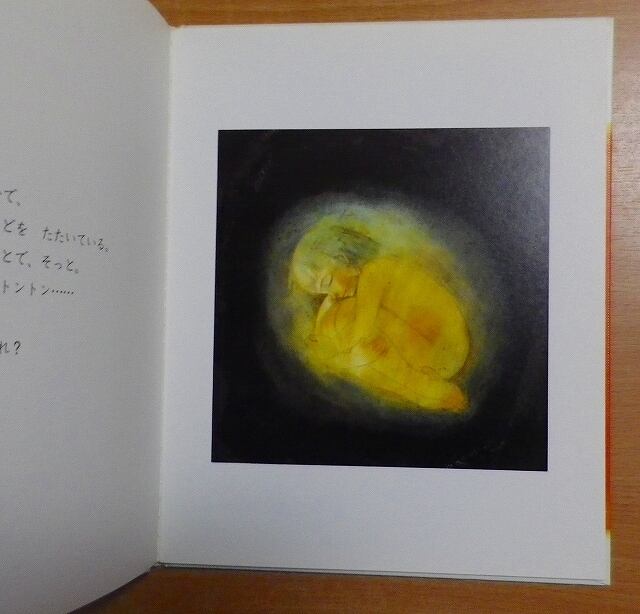 て、
どを　たたいている。
とで、そっと。
トントン……
れ？